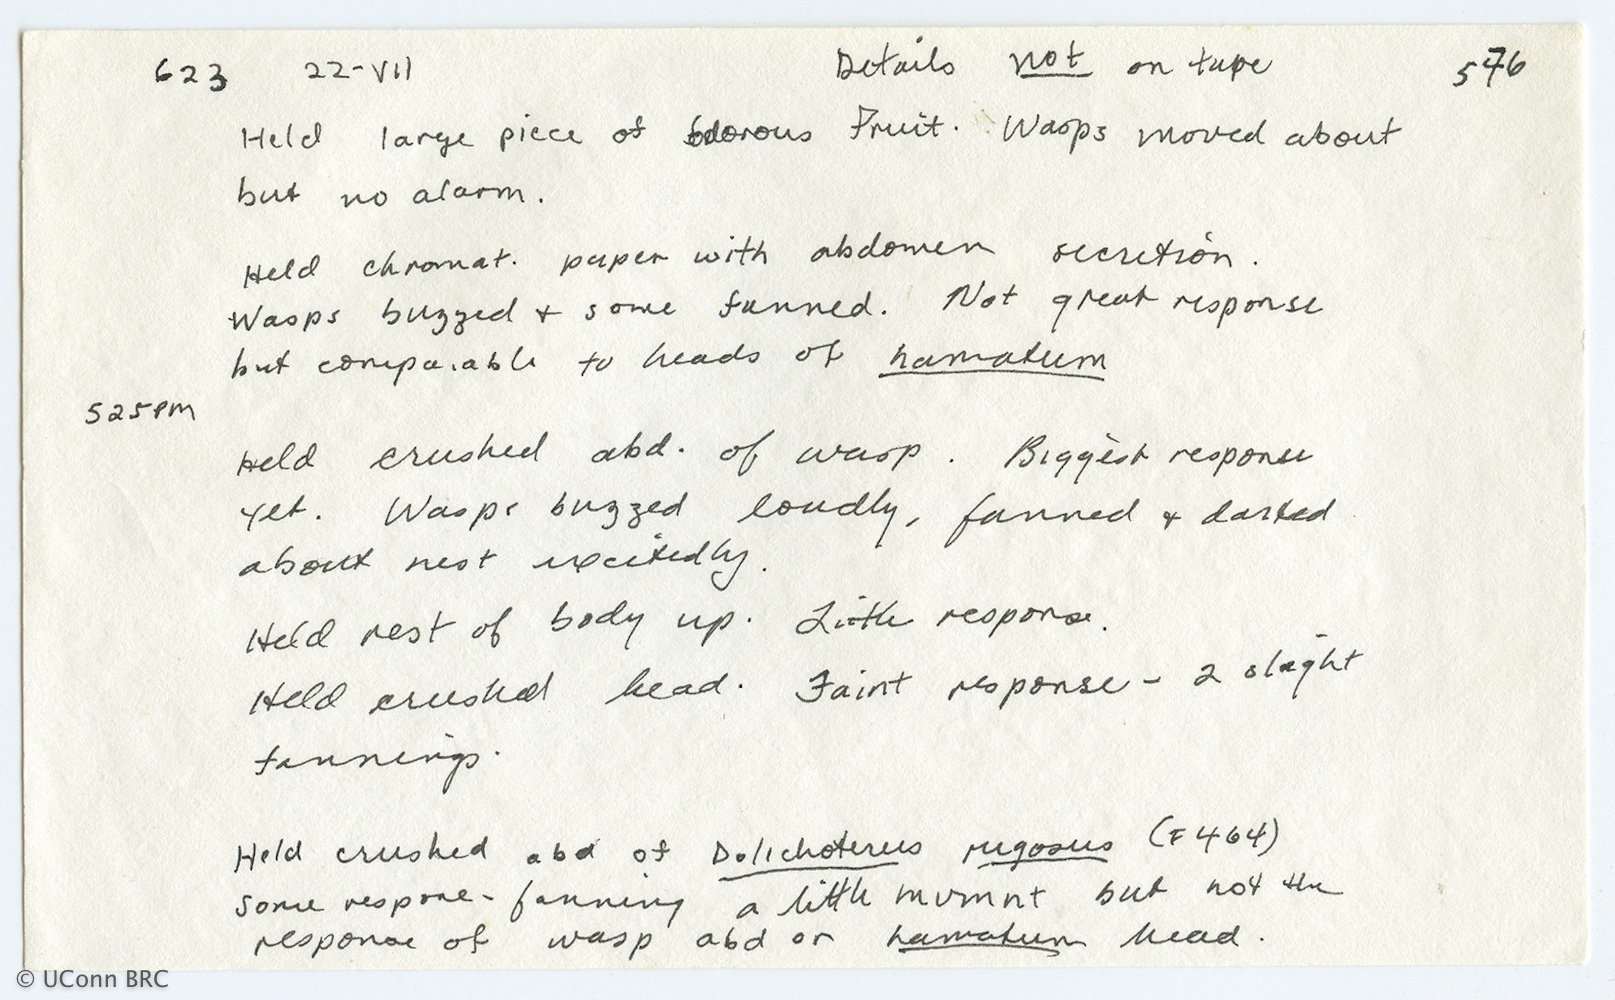 623 22-VII Details not on tape 576
Held large piece of odorous Fruit. Wasps moved about
but no alarm.
Held chromat. paper with abdomen secretion.
Wasps buzzed + some fanned. Not great response
but comparable to heads of hamatum
525PM
Held crushed abd. of wasp. Biggest response
yet. Wasps buzzed loudly, fanned + darted
about nest excitedly.
Held rest of body up. Little response.
Held crushed head. Faint response - 2 slight
fannings.
Held crushed abd of Dolichoterus rugosus (F464)
some respone - fanning a little mvmnt but not the
response of wasp abd or hamatum head.
© UConn BRC